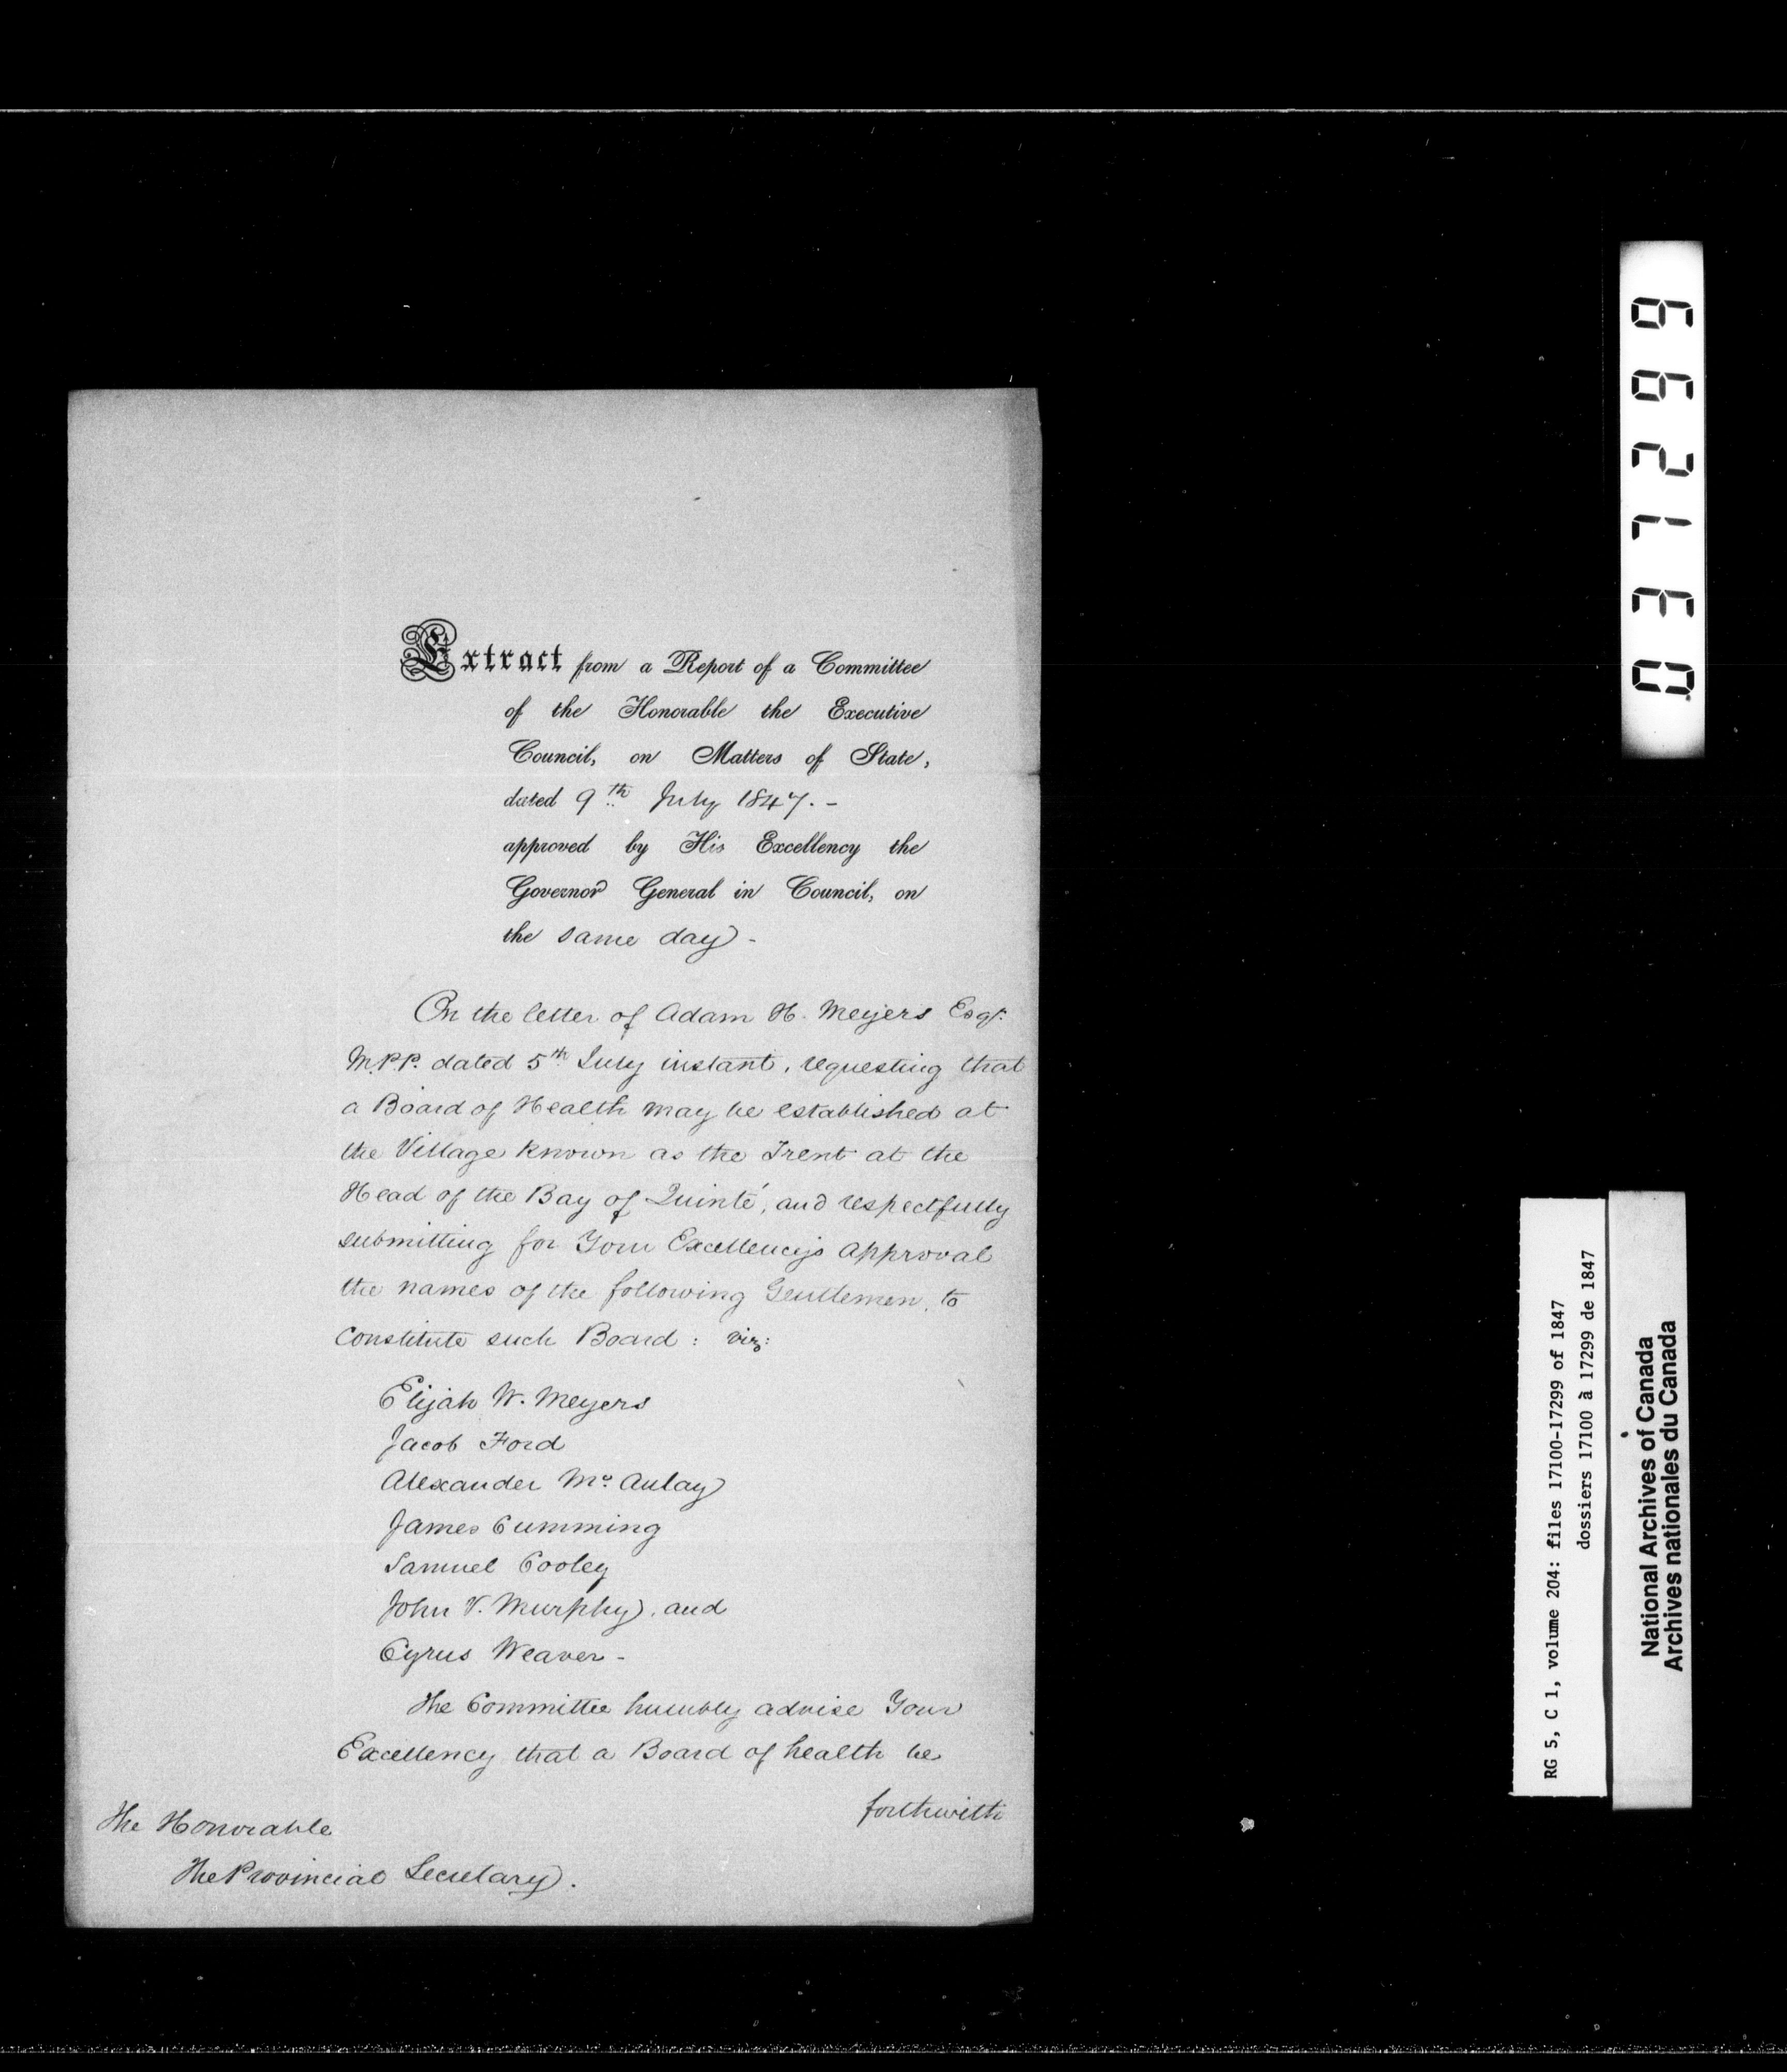 Extract from a Report of a Committee
of the Honorable the Executive
Council, on Matters of State,
dated 9th July 1847. -
approved by His Excellency the
Governor General in Council, on
the same day -
On the letter of Adam H. Meyers Esqr.
M.P.P. dated 5th July instant, requesting that
a Board of Health may be established at
the Village known as the Trent at the
Head of the Bay of Quinté, and respectfully
submitting for Your Excellency's Approval
the names of the following Gentlemen, to
constitute such Board : viz:
Elijah W. Meyers
Jacob Ford
Alexander Mc. Aulay
James Cumming
Samuel Cooley
John V. Murphy, and
Cyrus Weaver -
The Committee humbly advise Your
Excellency that a Board of health be
forthwith
The Honorable
The Provincial Secretary.
037299
RG 5, C 1, volume 204: files 17100-17299 of 1847
dossiers 17100 à 17299 de 1847
National Archives of Canada
Archives nationales du Canada